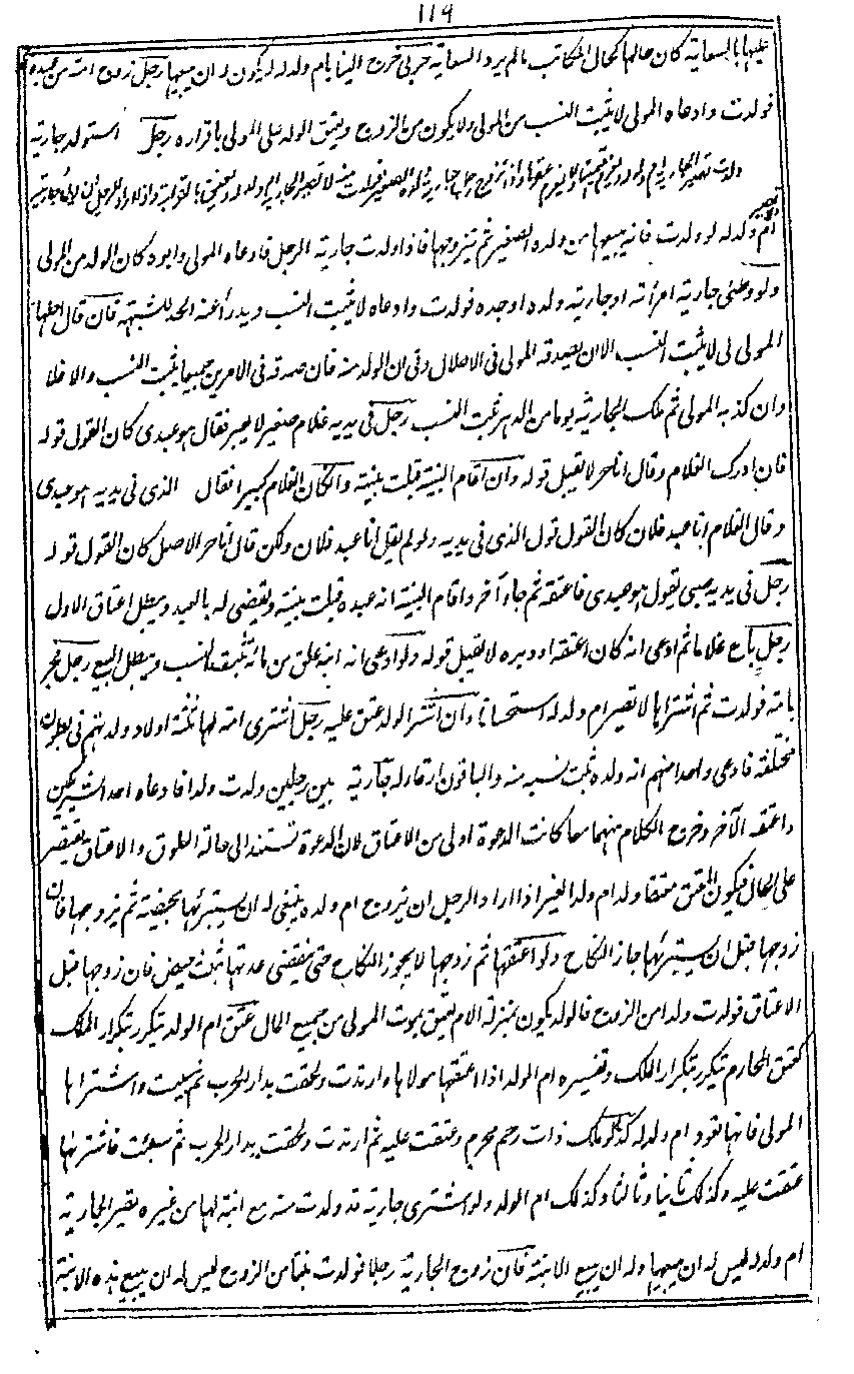 119
عليها بالسعاية كان حالها كحال المكاتب مالم يرد السعاية حربى خرج الينا بام ولد له لا يكون له ان يبيعها رجل زوج امته من عبده
فولدت وادعاه المولى لا يثبت النسب من المولى ولا يكون من الزوج ويعتق الولد على المولى باقراره رجل استولد جارية
ولدت تصير الجارية ام ولد له واذا تزوج رجل جارية ولده الصغير فولدت منه لا تصير الجارية ام ولد له ويعتق بالقرابة واذا اراد الرجل ان جارية
تصير
ام ولد له لو ولدت فانه يبيعها من ولده الصغير ثم يتزوجها فاذا ولدت جارية الرجل فادعاه المولى وابوه كان الولد من المولى
ولو وطئ جارية امرأته او جارية ولده او جده فولدت وادعاه لا يثبت النسب ويدرأ عنه الحد للشبهة فان قال احلها
المولى لى لا يثبت النسب الا ان يصدقه المولى فى الاحلال وفى ان الولد منه فان صدقه فى الامرين جميعا يثبت النسب والا فلا
وان كذبه المولى ثم ملك الجارية يوما من الدهر يثبت النسب رجل فى يديه غلام صغير لا يعبر فقال هو عبدى كان القول قوله
فان ادرك الغلام وقال انا حر لا يقبل قوله وان اقام البينة قبلت بينته وان كان الغلام كبيرا فقال الذى فى يديه هو عبدى
وقال الغلام انا عبد فلان كان القول قول الذى فى يديه ولو لم يقل انا عبد فلان ولكن قال انا حر الاصل كان القول قوله
رجل فى يديه صبى يقول هو عبدى فاعتقه ثم جاء آخر واقام البينة انه عبده قبلت بينته ويقضى له بالعبد ويبطل اعتاق الاول
رجل باع غلاما ثم ادعى انه كان اعتقه او دبره لا يقبل قوله ولو ادعى انه ابنه علق من مائه يثبت النسب ويبطل البيع رجل فجر
بامة فولدت ثم اشتراها لا تصير ام ولد له استحسانا وان اشترى الولد عتق عليه رجل اشترى امة لها ثلثة اولاد ولدتهم فى بطون
مختلفة فادعى واحدا منهم انه ولده ثبت نسبه منه والباقون ارقاء له جارية بين رجلين ولدت ولدا فادعاه احد الشريكين
واعتقه الآخر وخرج الكلام منهما معا كانت الدعوة اولى من الاعتاق لان الدعوة تستند الى حالة العلوق والاعتاق يقتصر
على الحال فيكون المعتق معتقا ولد ام ولد الغير اذا اراد الرجل ان يزوج ام ولده ينبغى له ان يستبرئها بحيضة ثم يزوجها فان
زوجها قبل ان يستبرئها جاز النكاح ولو اعتقها ثم زوجها لا يجوز النكاح حتى تنقضى عدتها بثلث حيض فان زوجها قبل
الاعتاق فولدت ولدا من الزوج فالولد يكون بمنزلة الام يعتق بموت المولى من جميع المال عتق ام الولد يتكرر بتكرار الملك
كعتق المحارم يتكرر بتكرار الملك وتفسيره ام الولد اذا اعتقها مولاها وارتدت ولحقت بدار الحرب ثم سبيت واشتراها
المولى فانها تعود ام ولد له كذا لو ملك ذات رحم محرم وعتقت عليه ثم ارتدت ولحقت بدار الحرب ثم سبيت فاشتراها
عتقت عليه وكذلك ثانيا وثالثا وكذلك ام الولد ولو اشترى جارية قد ولدت منه مع ابنة لها من غيره تصير الجارية
ام ولد له ليس له ان يبيعها وله ان يبيع الابنة فان زوج الجارية رجلا فولدت بنتا من الزوج ليس له ان يبيع هذه الابنة